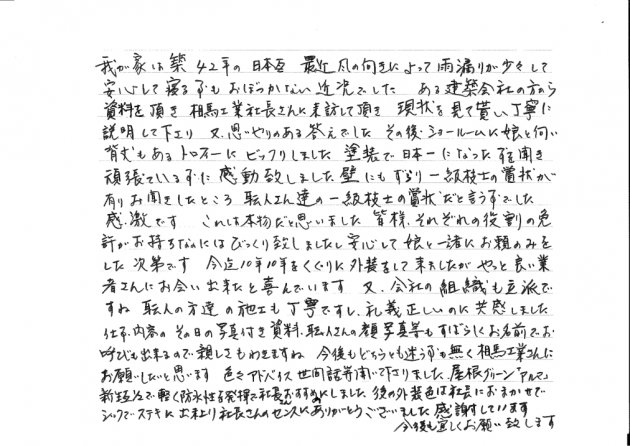 我が家は築42年の日本家 最近風の向きによって雨漏りが少々して
安心して寝る事もおぼつかない近況でした ある建築会社の方から
資料を頂き 相馬工業社長さんに来訪して頂き 現状を見て貰い丁寧に
説明して下さり 又、思いやりのある答えでした その後ショールームに娘と伺い
背丈もあるトロフィーにビックリしました 塗装で日本一になった事を聞き
頑張ている事に感動致しました 壁にもずらり一級技士の賞状が
有りお聞きしたところ 転人さん達の一級技士の賞状だと言う事でした
感激です これは本物だと思いました 皆様、それぞれの役割の免
許がお持ちなんにはびっくり致しましたし安心して娘と一緒にお頼のみを
した次第です 今迄10年10年をくぐりに外装をして来ましたが やっと良い業
者さんにお会い出来たと喜んでいます 又、会社の組織も立派で
すね 転人の方達の施工も丁寧ですし、礼義正しいのに共感しました
仕事内容の その日の写真付き資料、転人さんの顔写真等もすばらしくお名前でお
呼びも出来るので、親しさもわきますね 今後もどちらも迷う事も無く相馬工業さんに
お願いしたいと思います 色々アドバイス世間話等聞いて下さりました、屋根グリーン「アルマ」
新生活で軽く防水性を発揮で社長さんおすすめにしました 後の外装色は社長におまかせで
シックでステキに出来上り社長さんのセンスにありがとうございました 感謝しています
今後も宜しくお願い致します